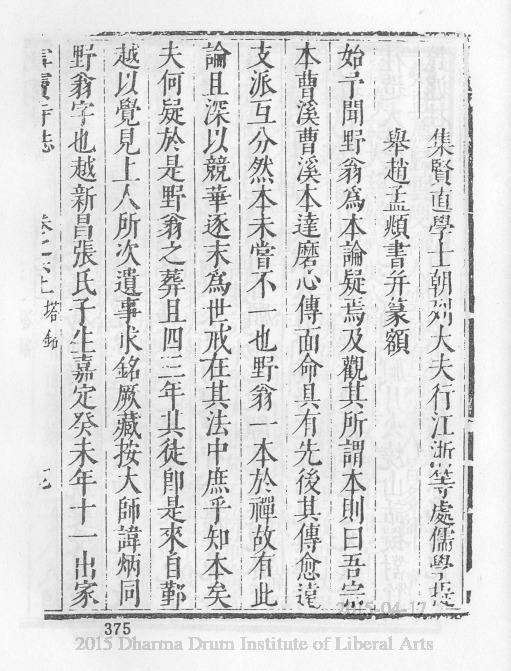 集賢直學士朝列大夫行江浙等處儒學提
舉趙孟頫書并篆額
始予聞野翁爲本論疑焉及觀其所謂本則曰吾宗
本曹溪曹溪本達磨心傳面命具有先後其傳愈遠
支派互分然本未嘗不一也野翁一本於禪故有此
論且深以競華逐末為世戒在其法中庶乎知本矣
夫何疑於是野翁之葬且四三年其徒卽是來自鄞
越以覺見上人所次遺事求銘厥藏按大師諱炳同
野翁字也越新昌張氏子生嘉定癸未年十一出家
寺志 卷之六上 塔銘 七
375
2015-04-17
2015 Dharma Drum Institute of Liberal Arts